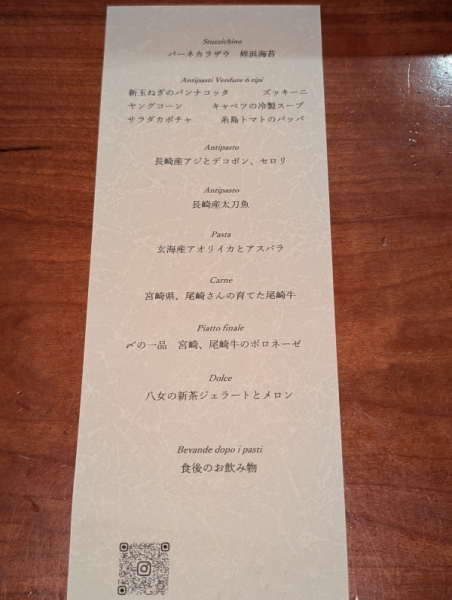 Stuzzichino
パーネカラザウ　姪浜海苔
Antipasti Verdure 6 tipi
新玉ねぎのパンナコッタ　ズッキーニ
ヤングコーン　キャベツの冷製スープ
サラダカボチャ　糸島トマトのパッパ
Antipasto
長崎産アジとデコポン、セロリ
Antipasto
長崎産太刀魚
Pasta
玄海産アオリイカとアスパラ
Carne
宮崎県、尾崎さんの育てた尾崎牛
Piatto finale
〆の一品　宮崎、尾崎牛のボロネーゼ
Dolce
八女の新茶ジェラートとメロン
Bevande dopo i pasti
食後のお飲み物